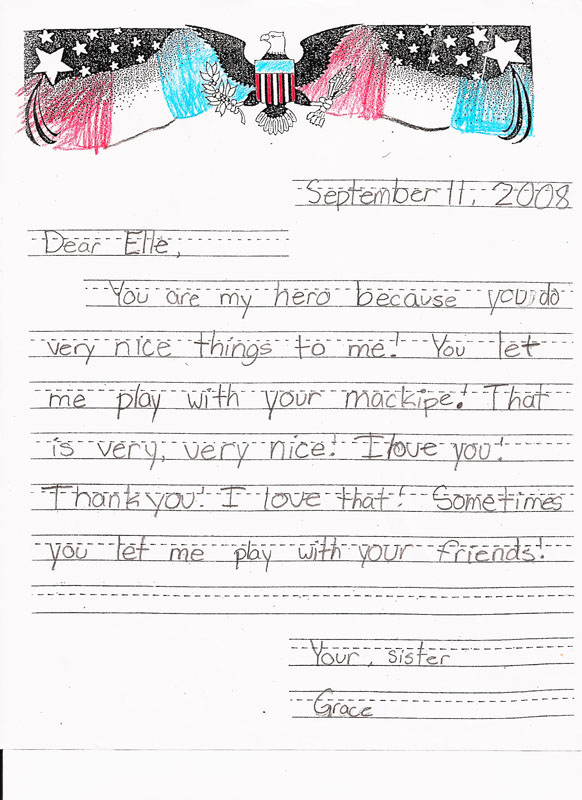 September 11, 2008
Dear Elle,
You are my hero because you do
very nice things to me! You let
me play with your mackipe! That
is very, very nice! I love you!
Thank you! I love that! Sometimes
you let me play with your friends!
Your, sister
Grace